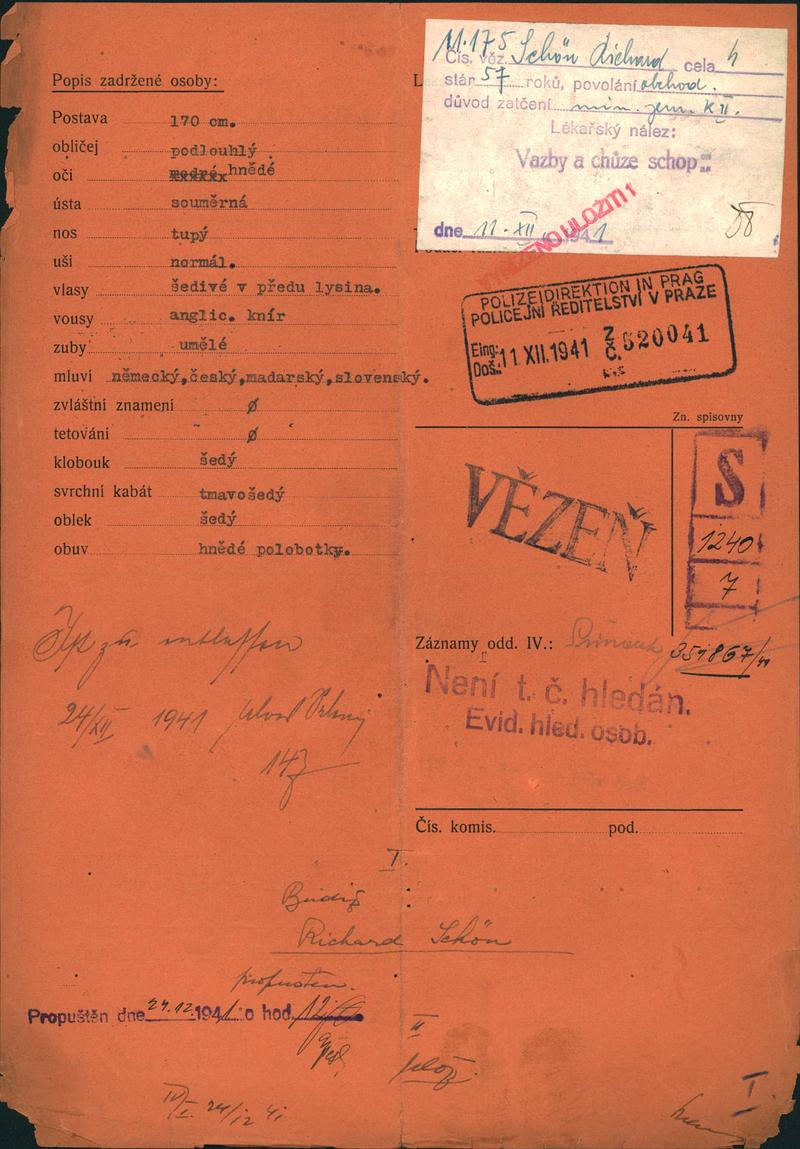 Popis zadržené osoby:
Postava 170 cm.
obličej podlouhlý
oči modré hnědé
ústa souměrná
nos tupý
uši normál.
vlasy šedivé v předu lysina.
vousy anglic. knír
zuby umělé
mluví německý,český,madarský,slovenský.
zvláštní znamení ø
tetování ø
klobouk šedý
svrchní kabát tmavošedý
oblek šedý
obuv hnědé polobotky.
24/XII 1941
147
11.175 Schön Richard
Čís. věz. cela 4
stár 57 roků, povolání obchod.
důvod zatčení
Lékařský nález:
Vazby a chůze schop
dne 11. XII. 1941
ULOŽITI
POLIZEIDIREKTION IN PRAG
POLICEJNÍ ŘEDITELSTVÍ V PRAZE
Eing:
Doš.: 11 XII. 1941 Z Č. 520041
Zn. spisovny
VĚZEŇ
S
1240
7
Záznamy odd. IV.:
351867/41
Není t. č. hledán.
Evid. hled. osob.
Čís. komis. pod.
I.
Budiž
Richard Schön
propuštěn.
Propuštěn dne 24.12. 1941 o hod.
II
I.